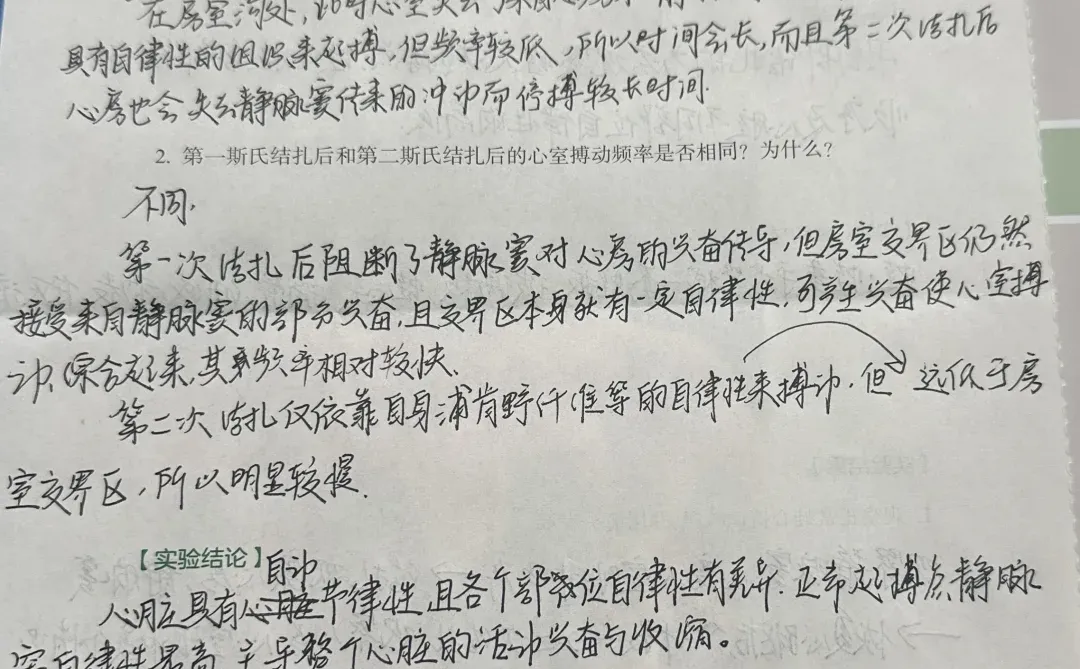 在房室沟处,此时心室失去
具有自律性的组织来起搏,但频率较低,所以时间会长,而且第二次结扎后
心房也会失去静脉窦传来的冲动而停搏较长时间.
2. 第一斯氏结扎后和第二斯氏结扎后的心室搏动频率是否相同?为什么?
不同.
第一次结扎后阻断了静脉窦对心房的兴奋传导,但房室交界区仍然
接受来自静脉窦的部分兴奋,且交界区本身就有一定自律性,可产生兴奋使心室搏
动,综合起来,其频率相对较快.
第二次结扎仅依靠自身浦肯野纤维等的自律性来搏动,但 远低于房
室交界区,所以明显较慢.
【实验结论】
自动
心脏具有心脏节律性,且各个部位自律性有差异.正常起搏点静脉
窦自律性最高,主导整个心脏的活动兴奋与收缩。